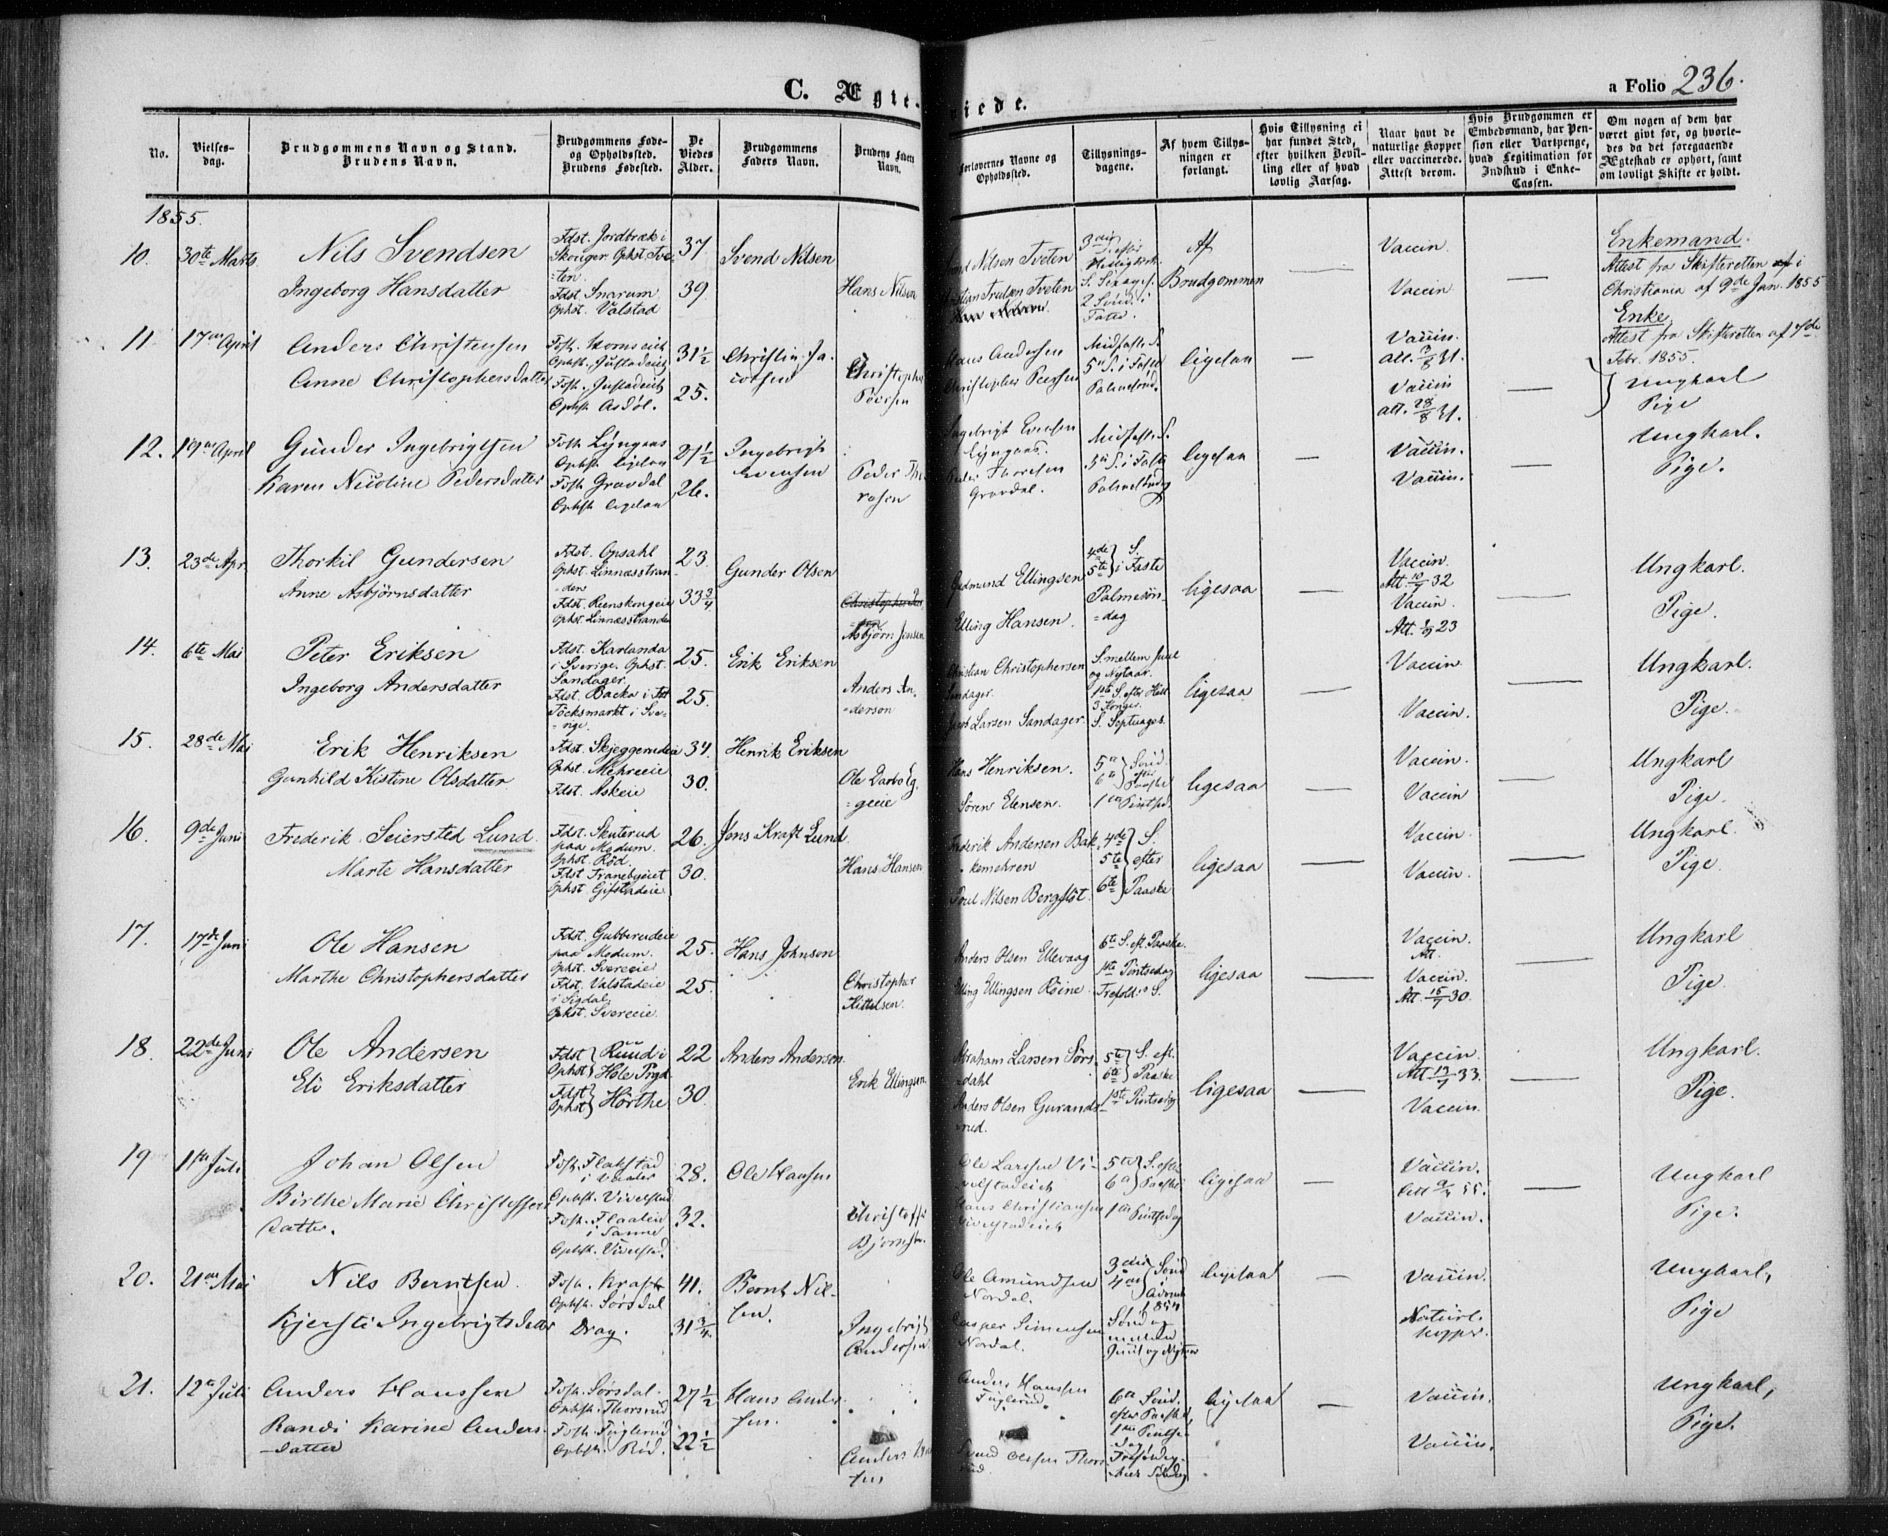 C. Ægte- viede.
a Folio 236.
No.
Vielses-
dag.
Brudgommens Navn og Stand.
Brudens Navn.
Brudgommens Føde-
og Opholdssted.
Brudens Fødested.
De
Viedes
Alder.
Brudgommens
Faders Navn.
Brudens Faders
Navn.
Forlovernes Navne og
Opholdssted.
Tillysnings-
dagene.
Af hvem Tillys-
ningen er
forlangt.
Hvis Tillysning ei
har fundet Sted,
efter hvilken Bevil-
ling eller af hvad
lovlig Aarsag.
Naar havt de
naturlige Kopper
eller vaccinerede.
Attest derom.
Hvis Brudgommen er
Embedsmand, har Pen-
sion eller Vartpenge,
hvad Legitimation for
Indskud i Enke-
Cassen.
Om nogen af dem har
været givt for, og hvorle-
des da det foregaaende
Ægteskab er ophørt, samt
om lovligt Skifte er holdt.
1855.
10. 30te Marts
Nils Svendsen
Ingeborg Hansdatter
Fdst. Jordbræk i
Skouger Ophst. Tve-
-ten.
Fdst. Snarum
Ophst. Valstad
37
39.
Svend Nilsen
Hans Nilsen
Nilsen Tveten
Trulsen Tveten
2 Sønd. i
Faste.
Af
Brudgommen
Vaccin.
Vaccin
Enkemand.
Attest fra Skifteretten i
Christiania af 9de Jan. 1855
Enke
Attest fra Skifteretten af
Febr. 1855.
11 17de April
Anders Christensen
Anne Christophersdatter
Ophst. Asdøl.
31½
25.
Christophe
Andersen
Christopher
Midfaste S.
5te S. i Faste
Palmesønd.
ligesaa
Vaccin.
Att. 31.
Vaccin
Att. 28/8 31.
Ungkarl
Pige
12. 19de April
Gunder Ingebrigtsen
Karen Nicoline Pedersdatter
Fdst. Lyngaas
Ophst. ligesaa
Fdst. Gravdal
Ophst. ligesaa
21½
26.
Ingebrigt
Evensen
Peder Tho-
resen
Ingebrigt Evensen
Lyngaas.
Peder Thoresen
Gravdal.
Midfaste S.
5te S. i Faste
Palmesøndag
ligesaa
Vaccin.
Vaccin.
Ungkarl.
Pige.
13. 23de Apr.
Thorkil Gundersen
Anne Asbjørnsdatter
Fdst. Opsahl
Ophst. Linnæsstran-
-den
Fdst. Reenskougeie
Ophst. Linnæsstranden
23
33¾
Gunder Olsen
Asbjørn Jensen
Gudmund Ellingsen
Elling Hansen.
4de S.
5te i Faste
Palmesøn-
-dag
ligesaa
Vaccin.
Att. 32
Vaccin.
Att. 23
Ungkarl.
Pige.
14. 6te Mai
Peter Eriksen
Ingeborg Andersdatter
Fdst. Karlanda
i Sverige. Ophst.
Sandager.
Fdst. Backa i
Töcksmarkt i Sve-
-rige.
25.
25.
Erik Eriksen
Anders An-
-derson
Christian Christophersen
Sandager.
Larsen Sandager.
S. mellem Juul
og Nytaar.
1ste S. efter Hell.
3 Konger.
S. Septuages.
ligesaa
Vaccin.
Vaccin.
Ungkarl.
Pige.
15. 28de Mai
Erik Henriksen
Gunhild Kistine Olsdatter
Fdst. Skjeggerudeie
Ophst. Mehreneie
Fdst. Askeie
34.
30.
Henrik Eriksen
Ole Larbo Eg-
-geeie
Hans Henriksen.
Søren Ellensen.
5te Sønd.
6te efter Paaske
1ste Pintsed.
ligesaa
Vaccin.
Vaccin
Ungkarl
Pige.
16. 9de Juni
Frederik Seiersted Lund.
Marte Hansdatter
Fdst. Skuterud
paa Modum.
Ophst. Röd.
Fdst. Tranebyeiet
Ophst. Gifstadeie
26.
30.
Jens Kraft Lund
Hans Hansen
Frederik Andersen Bak-
-kemehren
Poul Nilsen Bergfløt.
4de S.
5te efter
6te Paaske
ligesaa
Vaccin.
Vaccin.
Ungkarl.
Pige.
17. 17de Juni
Ole Hansen
Marthe Christophersdatter
Fdst. Gubberudeie
paa Modum.
Ophst. Svereeie
Fdst. Valstadeie
i Sigdal.
Ophst. Svereeie.
25.
25.
Hans Johnsen
Christopher
Kittelsen.
Anders Olsen Ellevaag
Elling Ellingsen Røine.
6te S. ef. Paaske.
1ste Pintsedag
Trefold. S.
ligesaa
Vaccin.
Att.
Vaccin.
Att. 15/7 30.
Ungkarl
Pige.
18. 22de Juni
Ole Andersen
Eli Eriksdatter
Fdst. Ruud i
Ophst. Hole Prgd.
Fdst. Hörthe
Ophst.
22
30.
Anders Andersen
Erik Ellingsen.
Abraham Larsen Sørs-
-dahl
Anders Olsen Gurands-
-rud.
5te S. eft.
6te Paaske
1ste Pintsedag
ligesaa
Vaccin.
Att. 13/7 33.
Vaccin.
Ungkarl.
Pige.
19 1ste Juli
Johan Olsen
Birthe Marie Christoffers-
datter.
Fdst. Flakstad
i
Ophst. Vivelstad
Fdst. Flaateie
i
Ophst. Vivelstad.
28.
32.
Ole Hansen
Christoffer
Bjørnsen.
Ole Larsen Vi-
velstadeiet
Hans Christiansen
Vivelstadeiet
5te S. efter
6te Paaske
1ste Pintsedag
ligesaa
Vaccin.
Att 55.
Vaccin.
Ungkarl
Pige.
20. 21de Mai
Nils Berntsen.
Kjersti Ingebrigtsdatter
Ophst. Sørsdal
Drag.
41.
31¾
Bernt Nil-
sen.
Ingebrigt
Andersen
Ole Amundsen
Nordal.
Casper Simensen
Nordal.
3die Sønd
4de i
Advent
1854
Sønd og
mellem
Juul og Nytaar
ligesaa
Vaccin.
Naturl.
kopper.
Ungkarl,
Pige
21. 12te Juli
Anders Hanssen
Randi Karine Anders-
-datter
Fdst. Sørsdal.
Ophst. Thorsrud
Fdst. Fuglerud
Ophst. Röd.
27½
22½
Hans Ander-
sen.
Anders
sen
Anders Hanssen
Fuglerud.
Olsen Thors-
rud.
6te Sønd.
efter Paaske,
1ste Pintse-
dag
ligesaa
Vaccin.
Vaccin.
Ungkarl,
Pige.